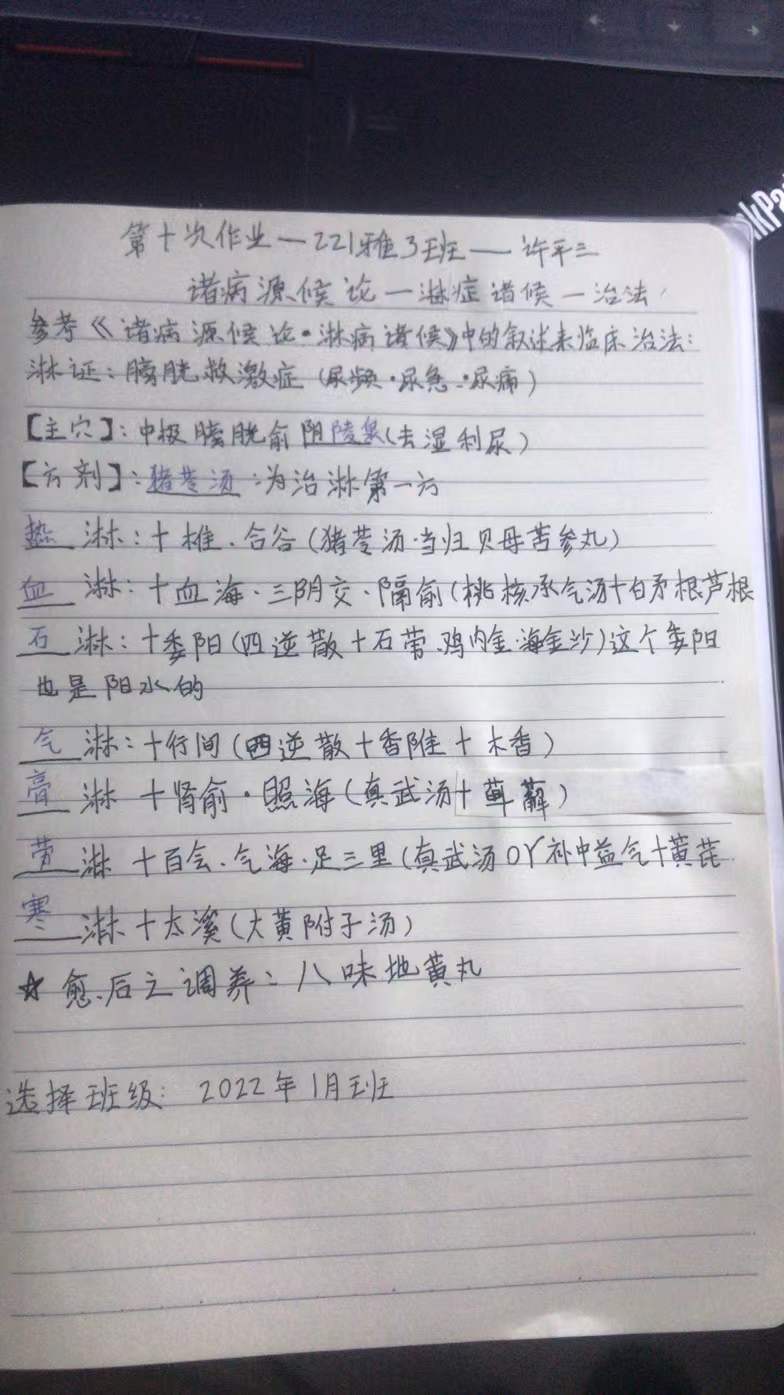 第十次作业一221雅3班一许平三
诸病源候论一淋症诸候一治法
参考《诸病源候论·淋病诸侯》中的叙述来临床治法:
淋证:膀胱救激症(尿频·尿急·尿痛)
【主穴】:中极膀胱俞阴陵泉(去湿利尿)
【方剂】:猪苓汤:为治淋第一方
热淋:十椎.合谷(猪苓汤·当归贝母苦参丸)
血淋:十血海·三阴交·隔俞(桃核承气汤十白矛根芦根
石淋:十委阳(四逆散十石苇.鸡内金·海金沙)这个委阳
也是阳水的
气淋:十行间(四逆散十香附十木香)
膏淋十肾俞·照海(真武汤十萆薢)
劳淋十百会.气海·足三里(真武汤or补中益气十黄芪
寒淋十太溪(大黄附子汤)
☆愈后之调养:八味地黄丸
选择班级:2022年1月班